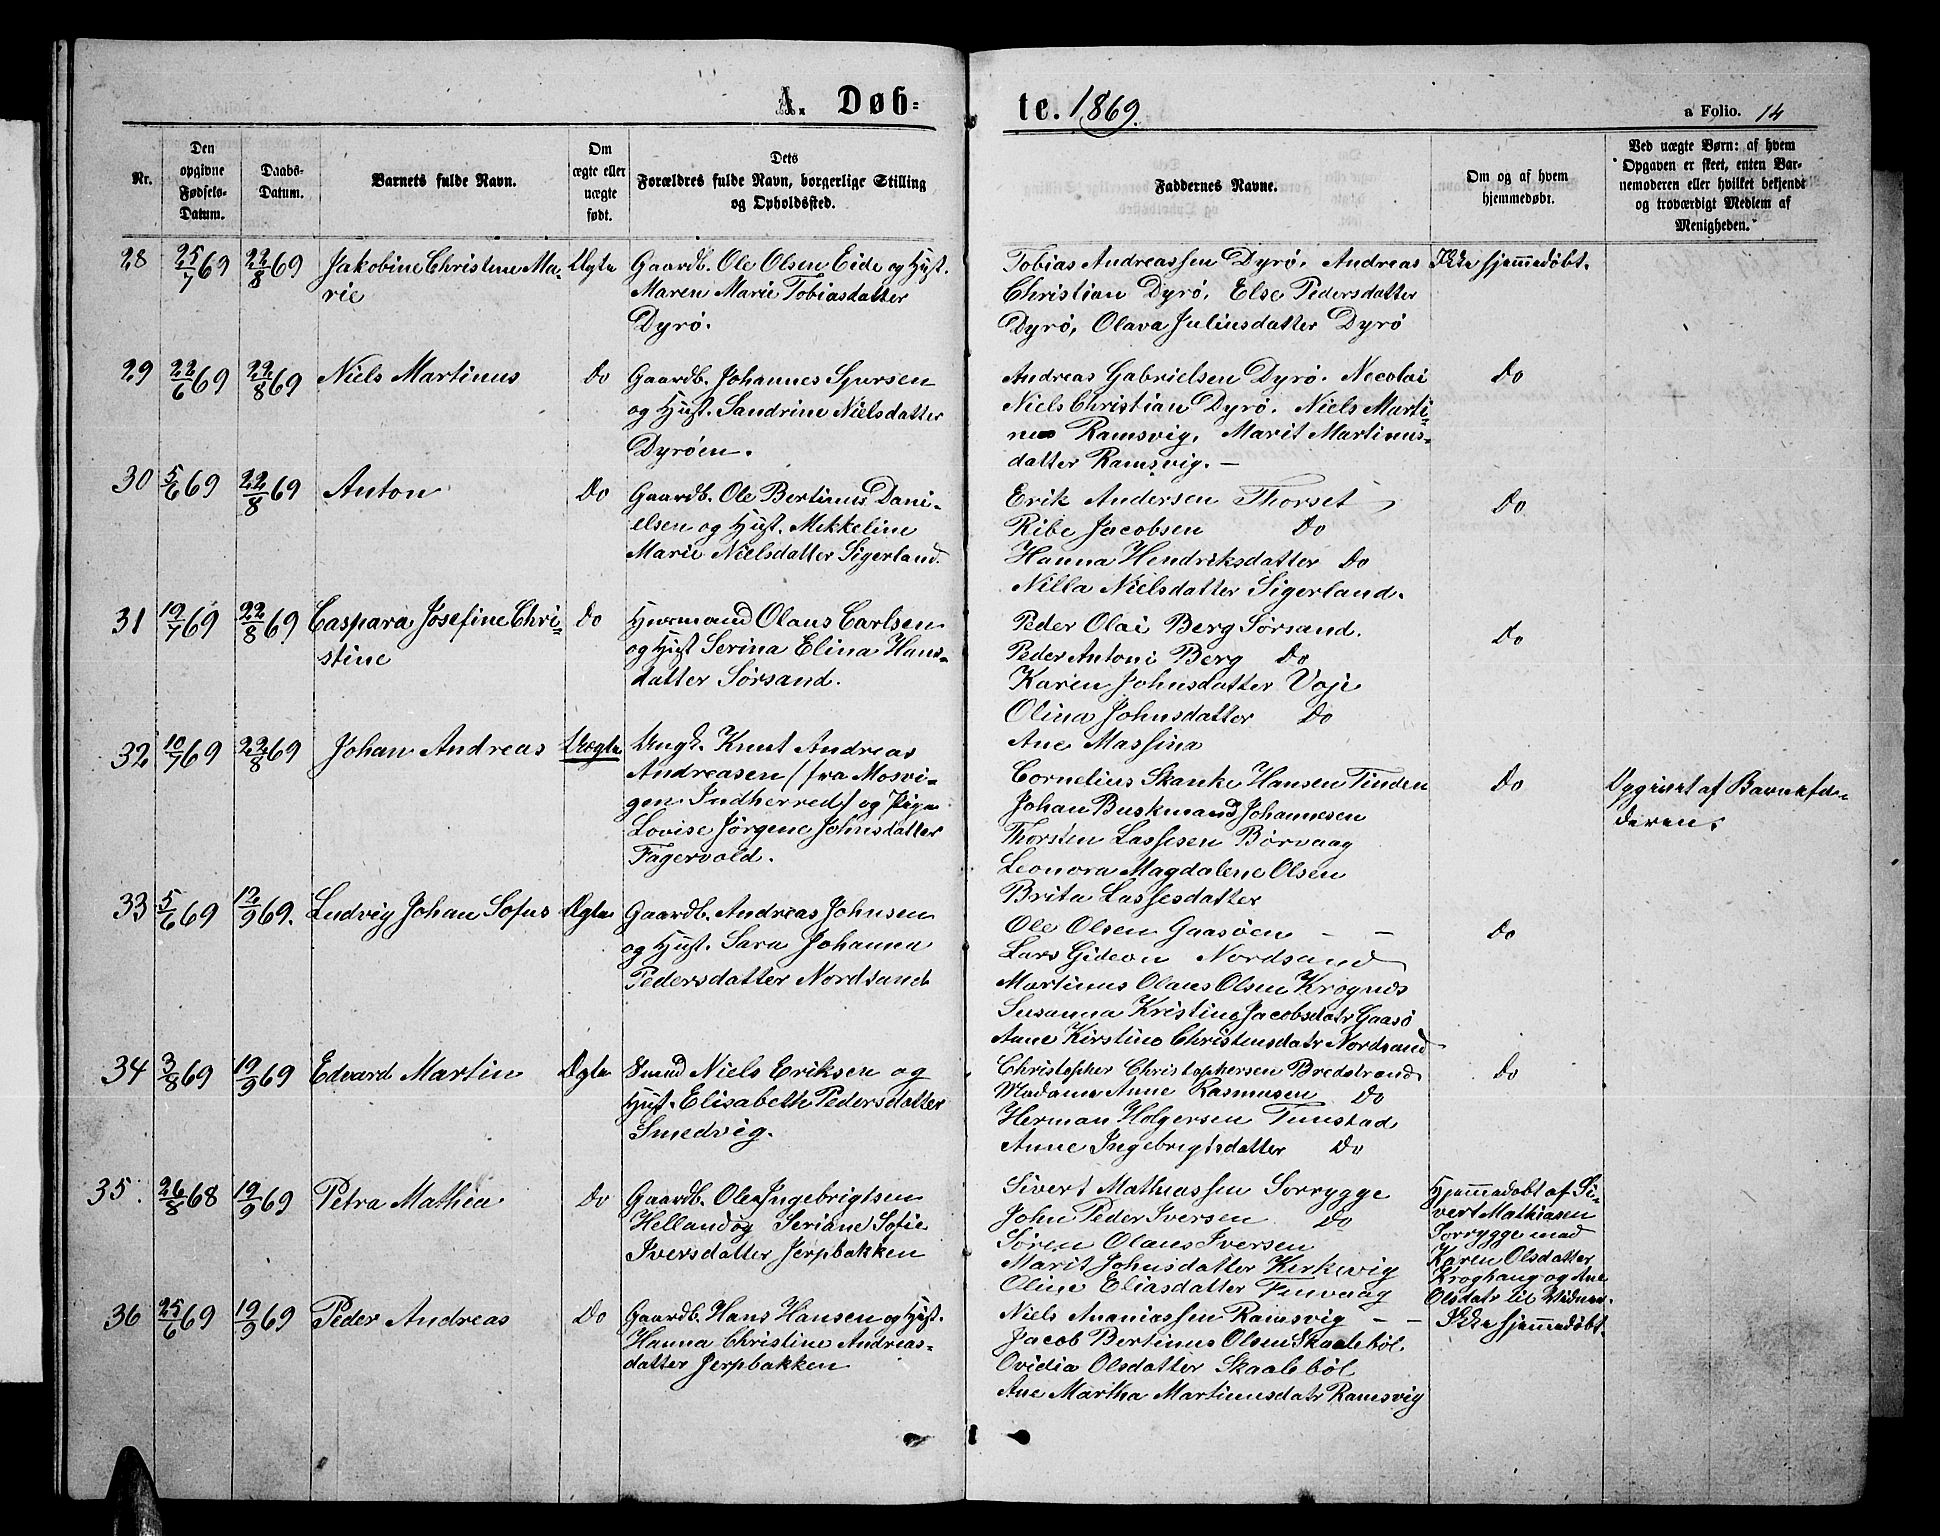 A. Døb=
te. 1869.
a Folio. 14
Nr.
Den opgivne Fødsels-Datum.
Daabs-Datum.
Barnets fulde Navn.
Om ægte eller uægte født.
Dets Forældres fulde Navn, borgerlige Stilling og Opholdssted.
Faddernes Navne.
Om og af hvem hjemmedøbt.
Ved uægte Børn: af hvem Opgaven er skeet, enten Barnemoderen eller hvilket bekjendt og troværdigt Medlem af Menigheden.
28 25/7 69 22/8 69 Jakobine Christine Ma-
rie
Ægte
Gaardb. Ole Olsen Eide og Hust.
Maren Marie Tobiasdatter
Dyrö.
Tobias Andreassen Dyrö. Andreas
Christian Dyrö, Else Pedersdatter
Dyrö, Olava Juliusdatter Dyrö
Ikke hjemmedøbt.
29 22/6 69 22/8 69 Niels Martinus
Do
Gaardb. Johannes Sjursen
og Hust. Sandrine Nielsdatter
Dyröen.
Andreas Gabrielsen Dyrö. Necolai
Niels Christian Dyrö. Niels Marti-
nus Ramsvig, Marit Martinus-
datter Ramsvig. –
Do
30 5/6 69 22/8 69 Anton
Do
Gaardb. Ole Bertinus Dani-
elsen og Hust. Mekkeline
Marie Nielsdatter Sigerland.
Erik Andersen Thorset
Ribe Jacobsen Do
Hanna Hendriksdatter Do
Nilla Nielsdatter Sigerland.
Do
31 19/7 69 22/8 69 Caspara Josefine Chri-
stine
Do
Huusmand Olaus Carlsen
og Hust Serina Elina Hans-
datter Sörsand.
Peder Olai Berg Sörsand.
Peder Antoni Berg Do
Karin Johnsdatter Voje
Olina Johnsdatter Do
Ane Massina
Do
32 10/7 69 22/8 69 Johan Andreas
Uægte
Ungk. Knut Andreas
Andreasen (fra Mosvi-
gen Indherred) og Pige
Lovise Jörgene Johnsdatter
Fagervold.
Cornelius Skanke Hansen Tinden
Johan Buskmand Johannesen
Thorsten Lassesen Börvaag
Leonora Magdalene Olsen
Brita Lassesdatter
Do
Opgivet af Barnefa-
deren.
33 5/6 69 12/9 69. Ludvig Johan Sofus
Ægte
Gaardb. Andreas Johnsen
og Hust. Sara Johanna
Pedersdatter Nordsand
Ole Olsen Gaasöen – –
Lars Gideon Nordsand
Martinus Olaus Olsen Krognes
Susanna Kristine Jacobsdatr Gaasö
Ane Kirstine Christensdatr Nordsand
Do
34 3/8 69 19/9 69 Edvard Martin
Ægte
Smed Niels Eriksen og
Hust. Elisabeth Pedersdatter
Smedvig.
Christopher Christophersen Bredstrand
Madame Anne Rasmusen Do
Herman Holgersen Tunstad
Anne Ingebrigtsdatter Do
Do
35. 26/8 68 19/9 69 Petra Mathea
Do
Gaardb. Ole Ingebrigtsen
Helland og Seriane Sofie
Iversdatter Jerpbakken
Sivert Mathiassen Sorrygge
John Peder Iversen Do
Sören Olaus Iversen
Marit Johnsdatter Kirkevig
Oline Eliasdatter Finvaag
Hjemmedøbt af Si-
vert Mathiasen
Sorrygge med
Karen Olsdatter
Kroghaug og Ane
Olsdatr til Vidner.
36 25/6 69 19/9 69 Peder Andreas
Do
Gaardb. Hans Hansen og Hust.
Hanna Christine Andreas-
datter Jerpbakken
Niels Ananiassen Ramsvig – –
Jacob Bertinus Olsen Skaaleböl
Ovidia Olsdatter Skaaleböl
Ane Martha Martinusdatr Ramsvig
Ikke hjemmedøbt.